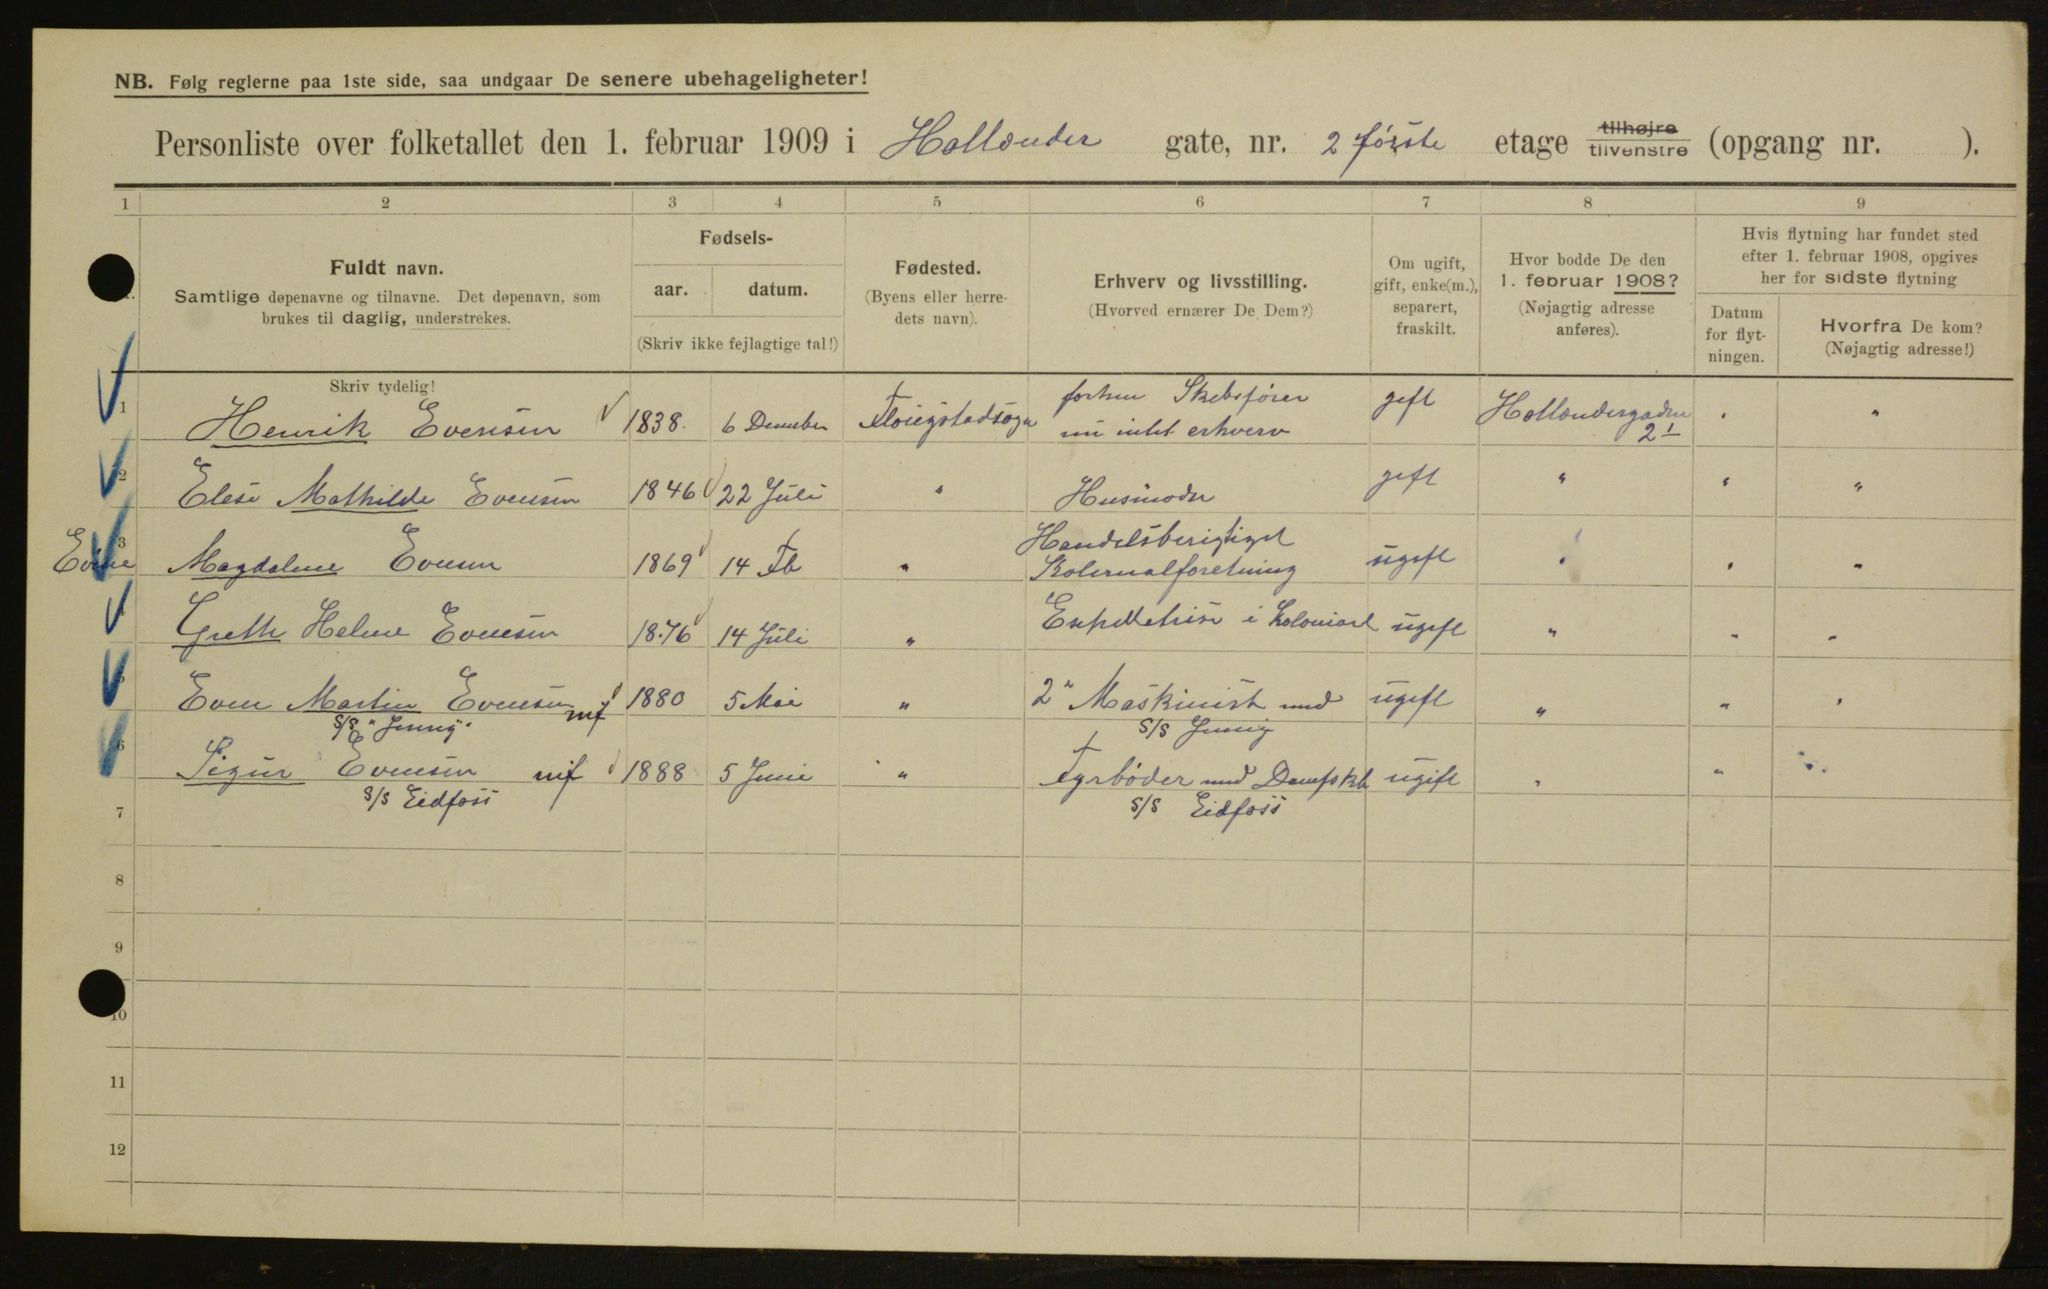 NB. Følg reglerne paa 1ste side, saa undgaar De senere ubehageligheter!
Personliste over folketallet den 1. februar 1909 i Hollænder gate, nr. 2 første etage tilhøjre tilvenstre (opgang nr. ).
1 2 3 4 5 6 7 8 9
Fuldt navn.
Samtlige døpenavne og tilnavne. Det døpenavn, som
brukes til daglig, understrekes.
Skriv tydelig!
Fødsels-
aar. datum.
(Skriv ikke fejlagtige tal!)
Fødested.
(Byens eller herre-
dets navn).
Erhverv og livsstilling.
(Hvorved ernærer De Dem?)
Om ugift,
gift, enke(m.),
separert,
fraskilt.
Hvor bodde De den
1. februar 1908?
(Nøjagtig adresse
anføres).
Hvis flytning har fundet sted
efter 1. februar 1908, opgives
her for sidste flytning
Datum
for flyt-
ningen.
Hvorfra De kom?
(Nøjagtig adresse!)
1 Henrik Evensen 1838. 6 December forhen Skibsfører gift Hollændergaden " "
nu intet erhverv 2 1
2 Elise Mathilde Evensen 1846 22 Juli " Husmoder gift " " "
3 Magdalene Evensen 1869 14 Fb " Handelsberigtiget ugift " " "
Kolonialforetning
4 Greth Helene Evensen 1876 14 Juli " i Kolonial ugift " " "
5 Even Martin Evensen mf 1880 5 Mai " 2" Maskinist med ugift " " "
S/S "Jenny" S/S Jenny
6 Sigur Evensen mf 1888 5 Juni " Fyrbøder med Dampskb ugift " " "
S/S Eidfoss S/S Eidfoss
7
8
9
10
11
12